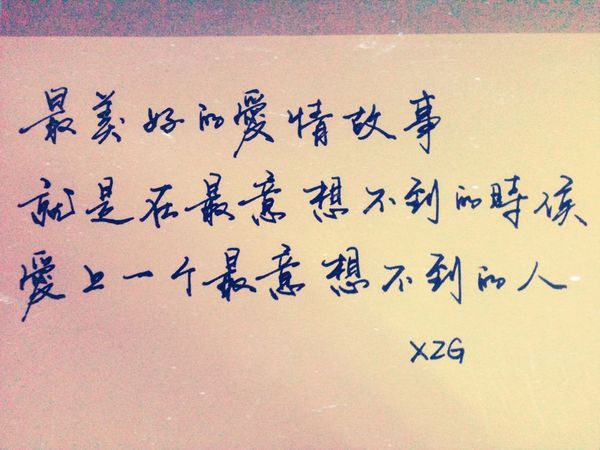 最美好的愛情故事
就是在最意想不到的時候
愛上一个最意想不到的人
XZG